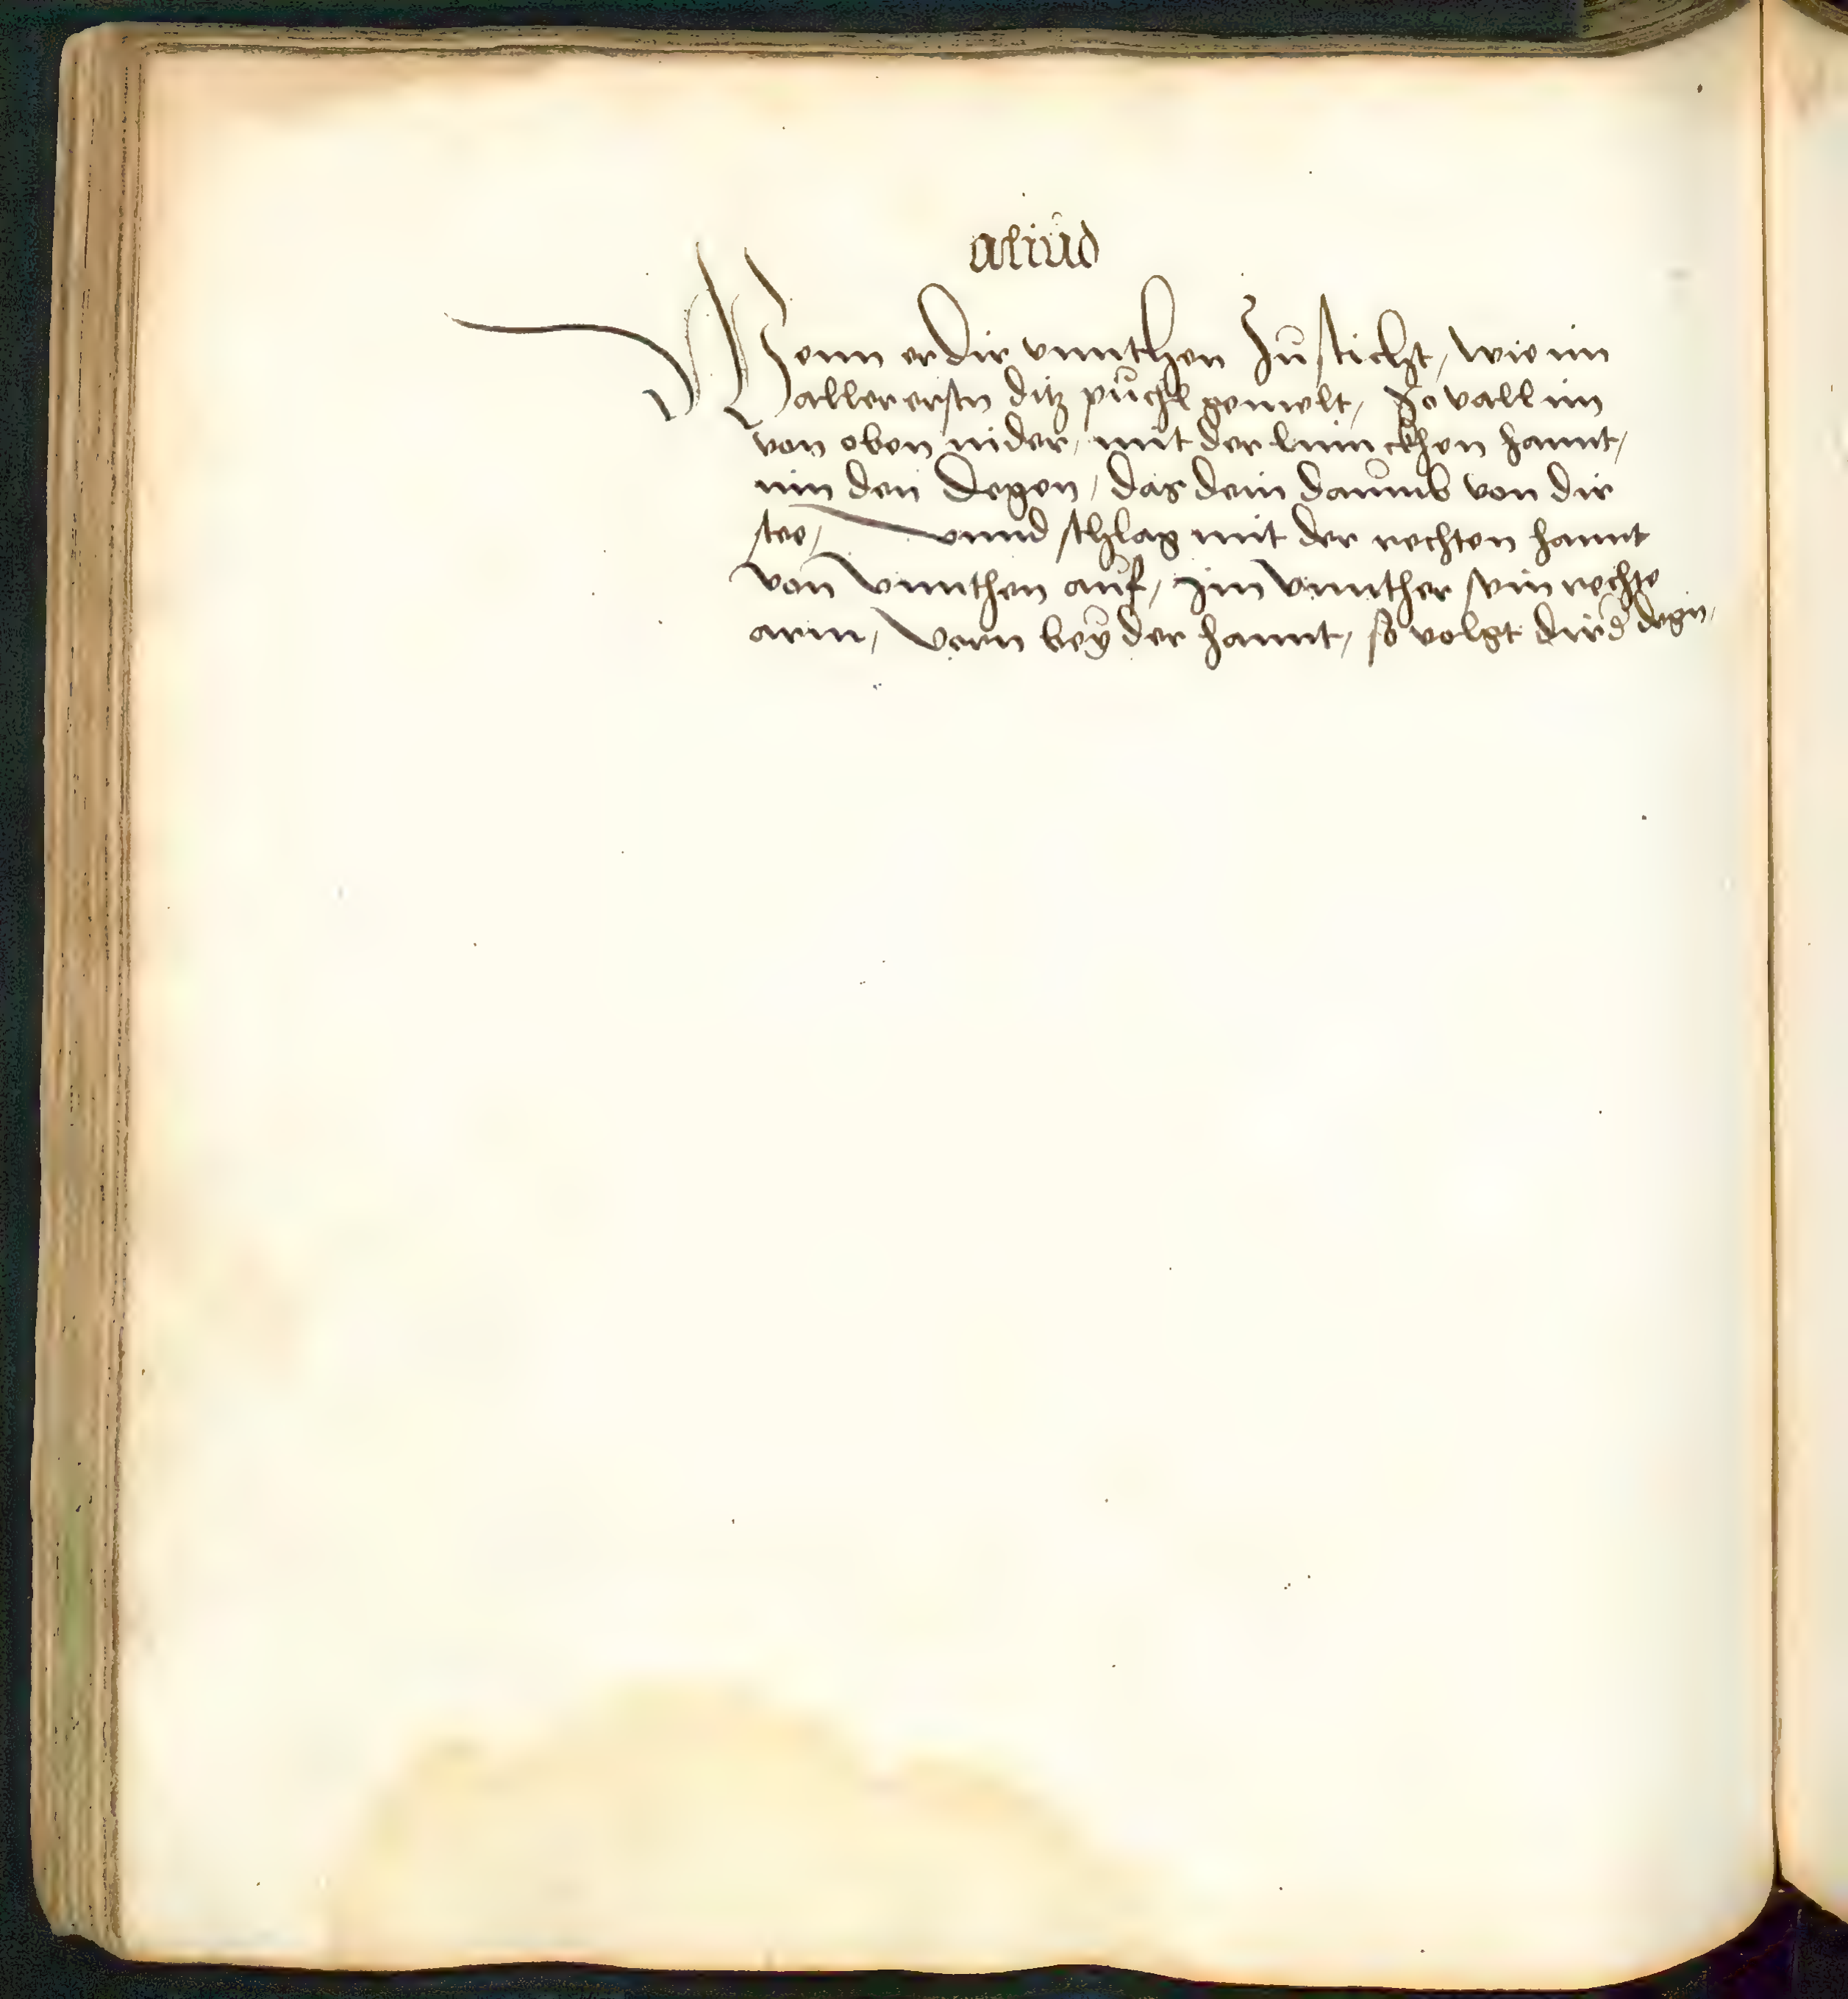 aliud
Wenn er dir vnnthen Zu sticht, wie im
aller erstn ditz puchl gemelt, So vall im
von oben nider, mit der linnckhen hannt,
inn den Degen, das dein daumb von dir
stee, vnnd schlag mit der rechten hannt
von vnnthen auf, im vnnther sein rechte
arm, vorn bey der hannt, so volgt dir d degn,